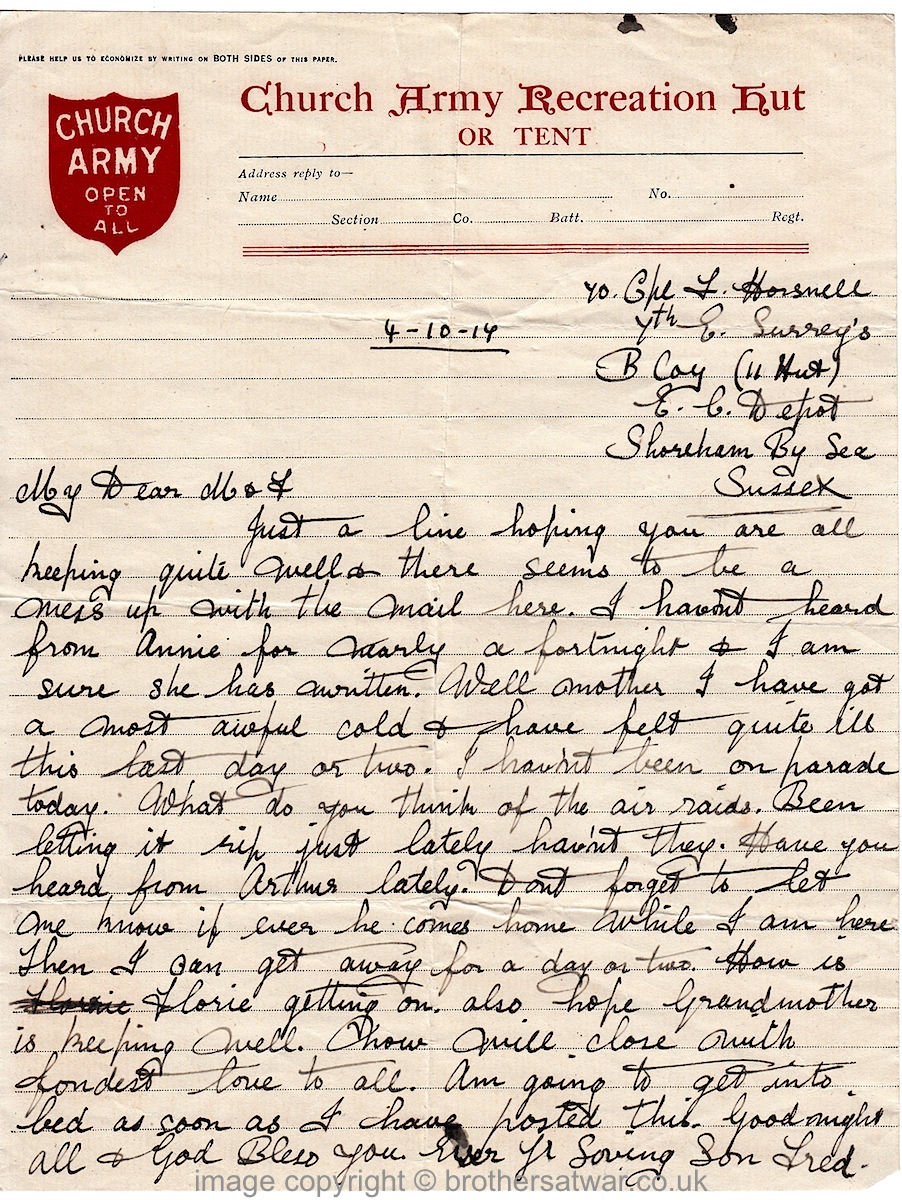 PLEASE HELP US TO ECONOMIZE BY WRITING ON BOTH SIDES OF THIS PAPER.
CHURCH
ARMY
OPEN
TO
ALL
Church Army Recreation Hut
OR TENT
Address reply to—
Name No.
Section Co. Batt. Regt.
Cpl F. Horsnell
4-10-17
7th E. Surrey's
B Coy (11 Hut)
E. C. Depot
Shoreham By Sea
Sussex
My Dear M & F
Just a line hoping you are all
keeping quite well & there seems to be a
mess up with the mail here. I havn't heard
from Annie for nearly a fortnight & I am
sure she has written. Well mother I have got
a most awful cold & have felt quite ill
this last day or two. I hav'nt been on parade
today. What do you think of the air raids. Been
letting it rip just lately hav'nt they. Have you
heard from Arthur lately. Dont forget to let
me know if ever he comes home while I am here
Then I can get away for a day or two. How is
Florie getting on. also hope Grandmother
is keeping well. Now will close with
fondest love to all. Am going to get into
bed as soon as I have posted this. Goodnight
all & God Bless you. Ever Yr Loving Son Fred.
image copyright © brothersatwar.co.uk